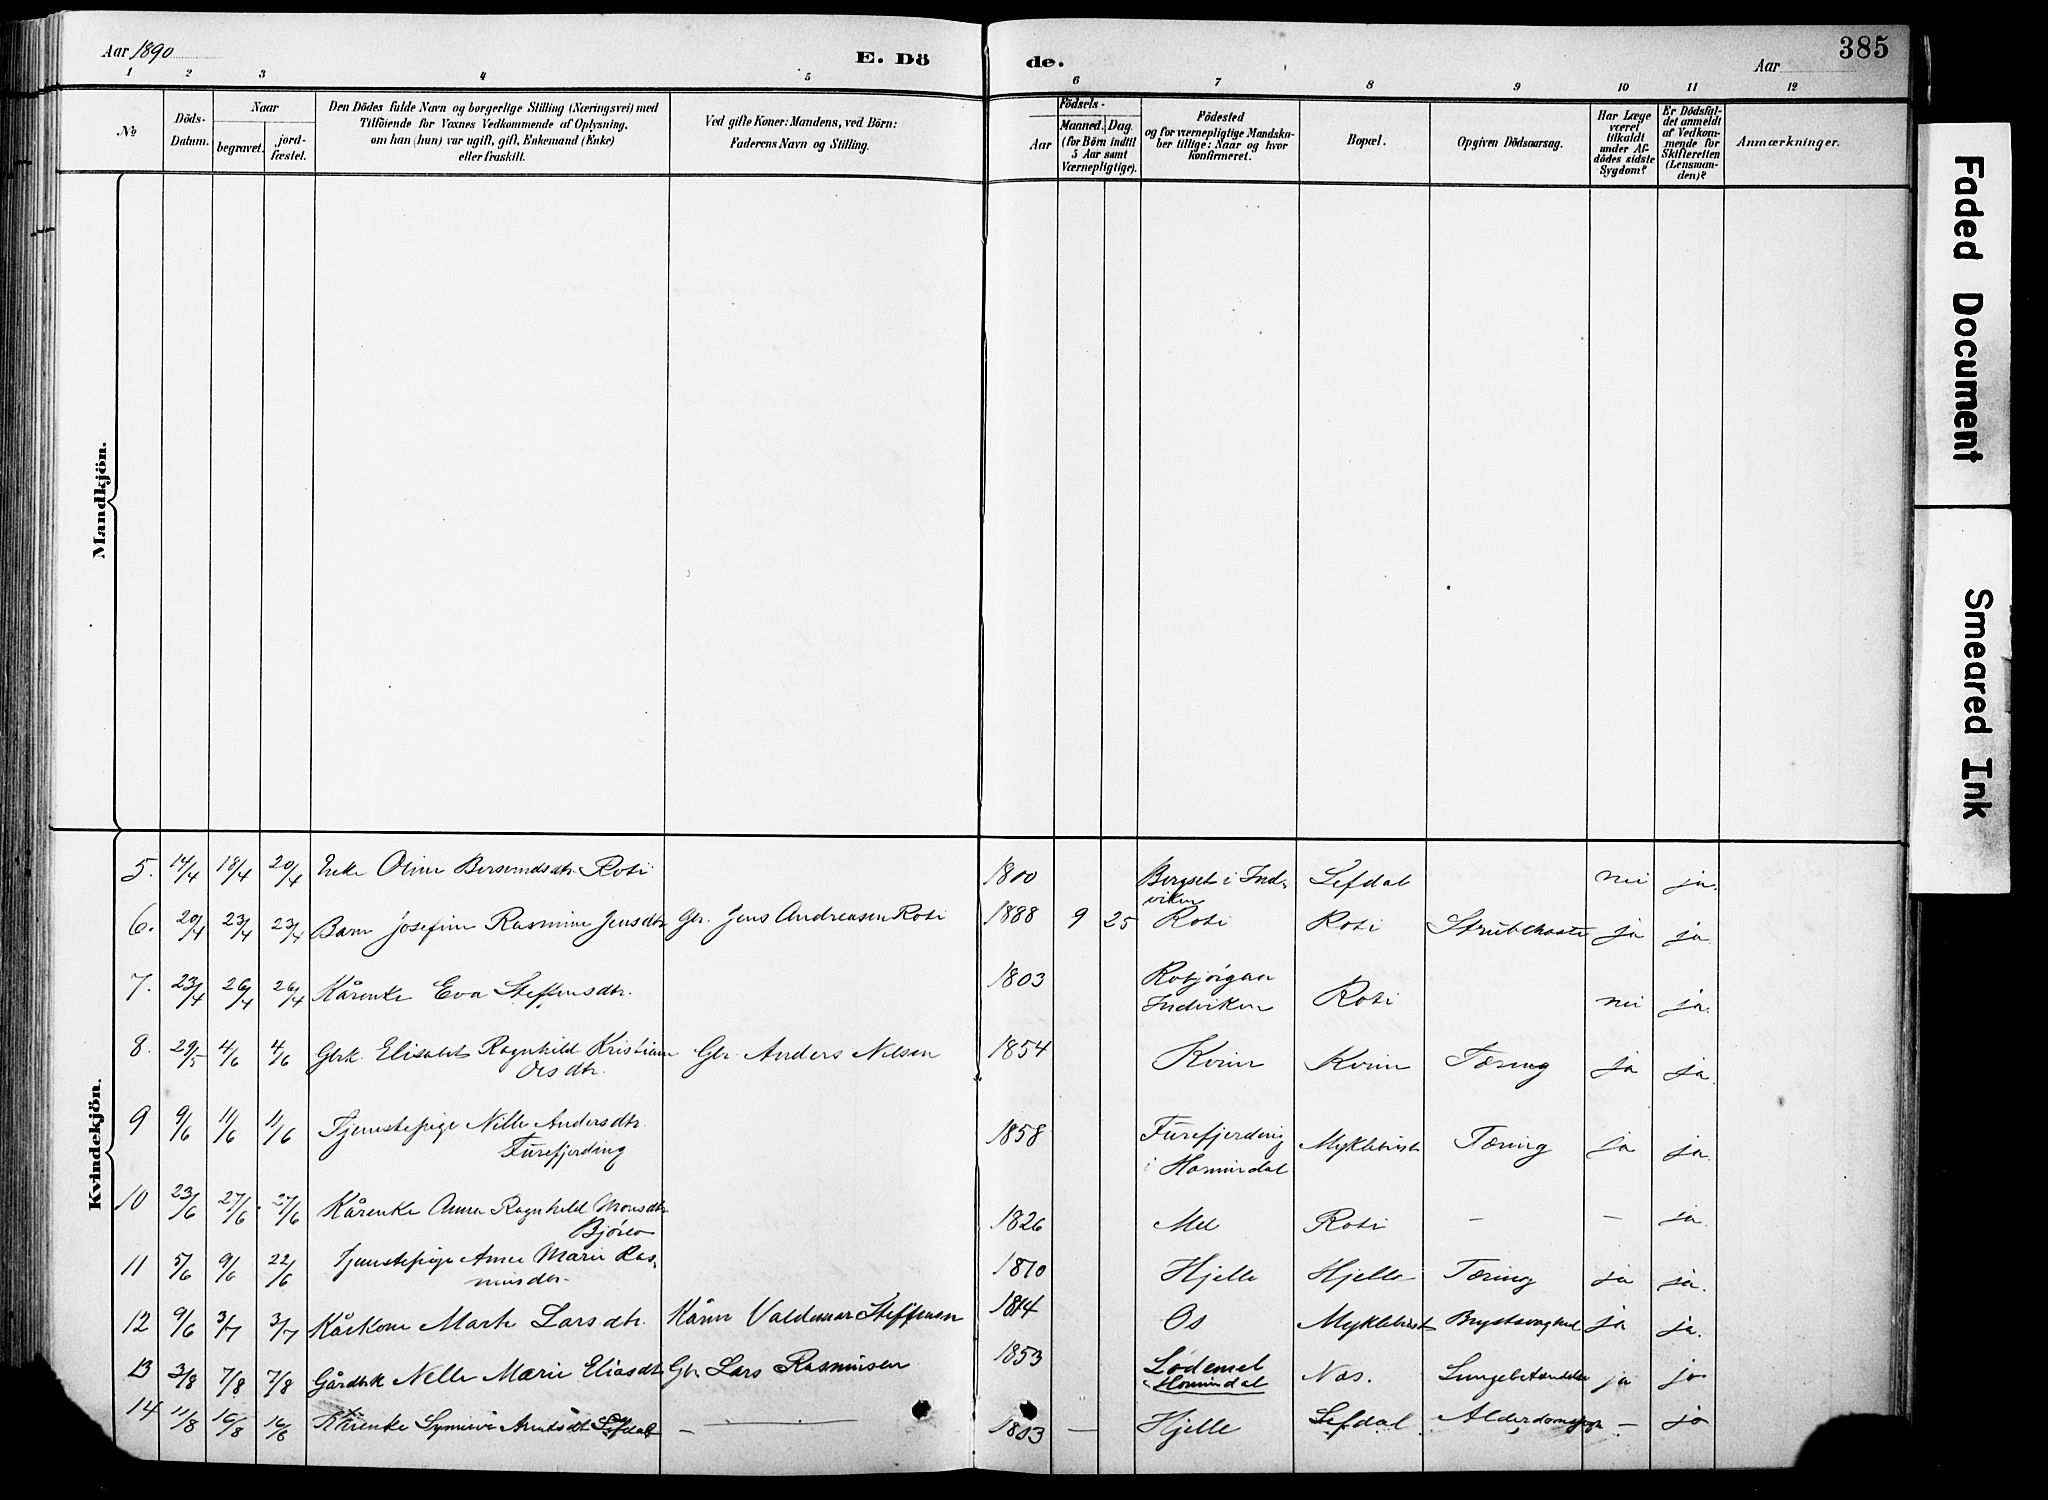 Aar 1890
E. Dö
de.
Aar
385
1 2 3 4 5 6 7 8 9 10 11 12
№
Döds-
Datum.
Naar
begravet.
jord-
fæstet.
Den Dödes fulde Navn og borgerlige Stilling (Næringsvei) med
Tilföiende for Voxnes Vedkommende af Oplysning,
om han (hun) var ugift, gift, Enkemand (Enke)
eller fraskilt.
Ved gifte Koner: Mandens, ved Börn:
Faderens Navn og Stilling.
Födsels-
Aar
Maaned.
Dag
(for Börn indtil
5 Aar samt
Værnepligtige).
Födested
og for værnepligtige Mandska-
ber tillige: Naar og hvor
konfirmeret.
Bopæl.
Opgiven Dödsaarsag.
Har Læge
været
tilkaldt
under Af-
dödes sidste
Sygdom?
Er Dödsfal-
det anmeldt
af Vedkom-
mende for
Skifteretten
(Lensman-
den)?
Anmærkninger.
Mandkjön.
Kvindekjön.
5. 14/4 18/4 20/4 Enke Oline Bersvendsdtr. Roti 1800 Bergset i Ind- Lefdal nei ja.
viken
6. 20/4 23/4 23/4 Barn Josefine Rasmine Jensdtr Gbr. Jens Andreasen Roti 1888 9 25 Roti Roti Strubehoste ja ja.
7. 23/4 26/4 26/4 Kårenke Eva Steffensdtr. 1803 Robjørgan
Indviken Roti nei ja.
8. 29/5 4/6 4/6 Gbrk. Elisabet Ragnhild Kristiane Gbr. Anders Nilsen 1854 Kvim Kvim Tæring ja ja.
Olsdtr.
9 9/6 11/6 11/6 Tjenstepige Nille Andersdtr. 1858 Furefjerding Myklebust Tæring ja ja.
Furefjerding i Hornindal
10 23/6 27/6 27/6 Kårenke Anne Ragnhild Monsdtr. 1826 Mel Roti — — ja.
Bjørlo
11 5/6 9/6 22/6 Tjenstepige Anne Marie Ras- 1870 Hjelle Hjelle Tæring ja ja.
musdtr.
12 9/6 3/7 3/7 Kårkone Marte Larsdtr. Kårm Valdemar Steffensen 1814 Os Myklebust ja ja.
13 3/8 7/8 7/8 Gårdbrk Nelle Marie Eliasdtr Gbr Lars Rasmusen 1853 Lødemel Næs. Lungebetændelse ja ja
Hornindal
14 11/8 16/8 16/8 Kårenke Synneve Arntsdtr Lefdal — 1803 — Hjelle Lefdal — ja
Faded Document
Smeared Ink